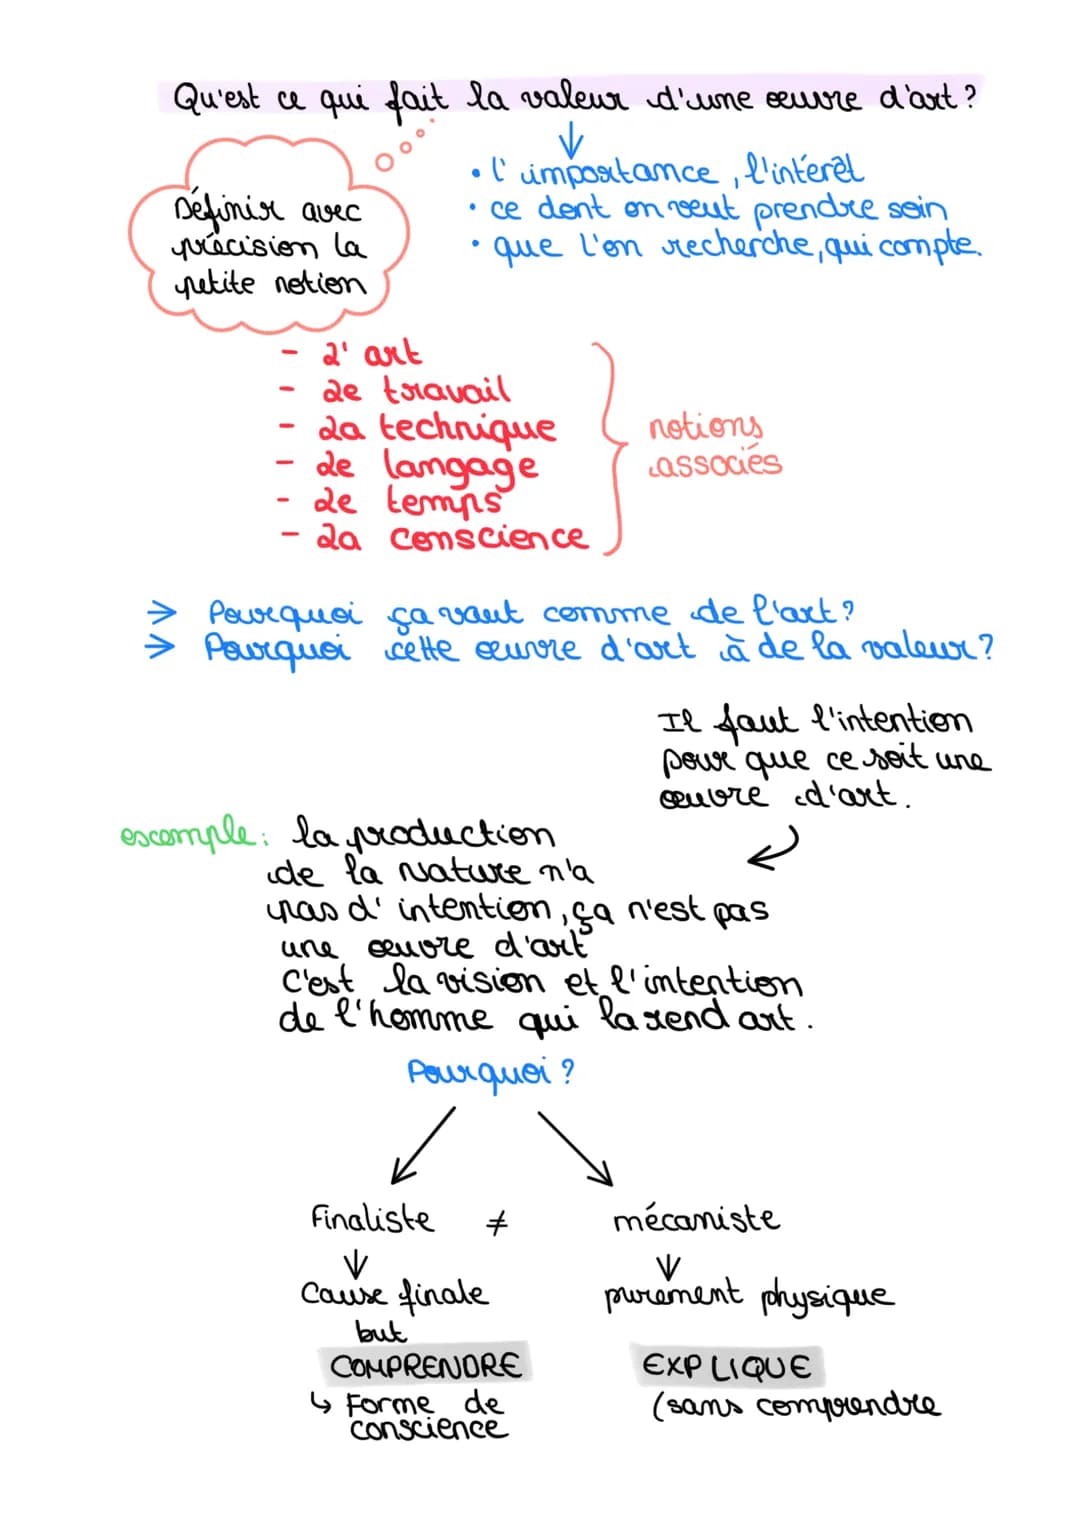 Qu'est ce qui fait la valeur d'une œuvre d'art ?
• l'importance, l'intérêt
• ce dont on veut prendre soin
• que l'on recherche, qui compte.
Définir avec
précision la
petite notion
- L'art
- Le travail
- La technique
- Le langage
- Le temps
- La conscience
notions
associés
→ Pourquoi ça vaut comme de l'art ?
→ Pourquoi cette œuvre d'art à de la valeur ?
Il faut l'intention
pour que ce soit une
œuvre d'art.
exemple : la production
de la Nature n'a
pas d'intention, ça n'est pas
une œuvre d'art
C'est la vision et l'intention
de l'homme qui la rend art.
Pourquoi ?
Finaliste ≠ mécaniste
Cause finale purement physique
but
COMPRENDRE EXPLIQUE
↳ Forme de (sans comprendre
conscience